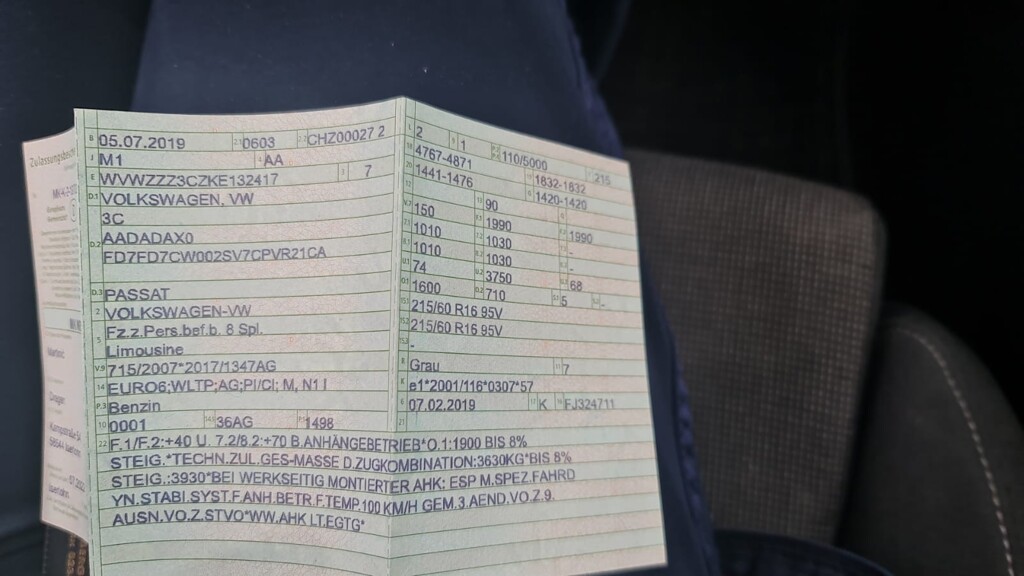 Zulassungsb
B 05.07.2019 2.1 0603 2.2 CHZ00027 2
J M1 4 AA
E WVWZZZ3CZKE132417 3 7
D.1 VOLKSWAGEN, VW
3C
D.2 AADADAX0
FD7FD7CW002SV7CPVR21CA
D.3 PASSAT
2 VOLKSWAGEN-VW
5 Fz.z.Pers.bef.b. 8 Spl.
Limousine
V.9 715/2007*2017/1347AG
14 EURO6;WLTP;AG;PI/CI; M, N1 I
P.3 Benzin
10 0001 14.1 36AG P.1 1498
L 2 9 1 110/5000 T 215
18 4767-4871 19 1832-1832
20 1441-1476 G 1420-1420
12 - 13 90
V.7 150 F.1 1990 F.2 1990
7.1 1010 7.2 1030 7.3 -
8.1 1010 8.2 1030 8.3 -
U.1 74 U.2 3750 U.3 68
O.1 1600 O.2 710 S.1 5 S.2 -
15.1 215/60 R16 95V
15.2 215/60 R16 95V
15.3 -
R Grau 11 7
K e1*2001/116*0307*57
6 07.02.2019 17 K 16 FJ324711
21
22 F.1/F.2:+40 U. 7.2/8.2:+70 B.ANHÄNGEBETRIEB*O.1:1900 BIS 8%
STEIG.*TECHN.ZUL.GES-MASSE D.ZUGKOMBINATION:3630KG*BIS 8%
STEIG.:3930*BEI WERKSEITIG MONTIERTER AHK: ESP M.SPEZ.FAHRD
YN.STABI.SYST.F.ANH.BETR.F.TEMP.100 KM/H GEM.3.AEND.VO.Z.9.
AUSN.VO.Z.STVO*WW.AHK LT.EGTG*